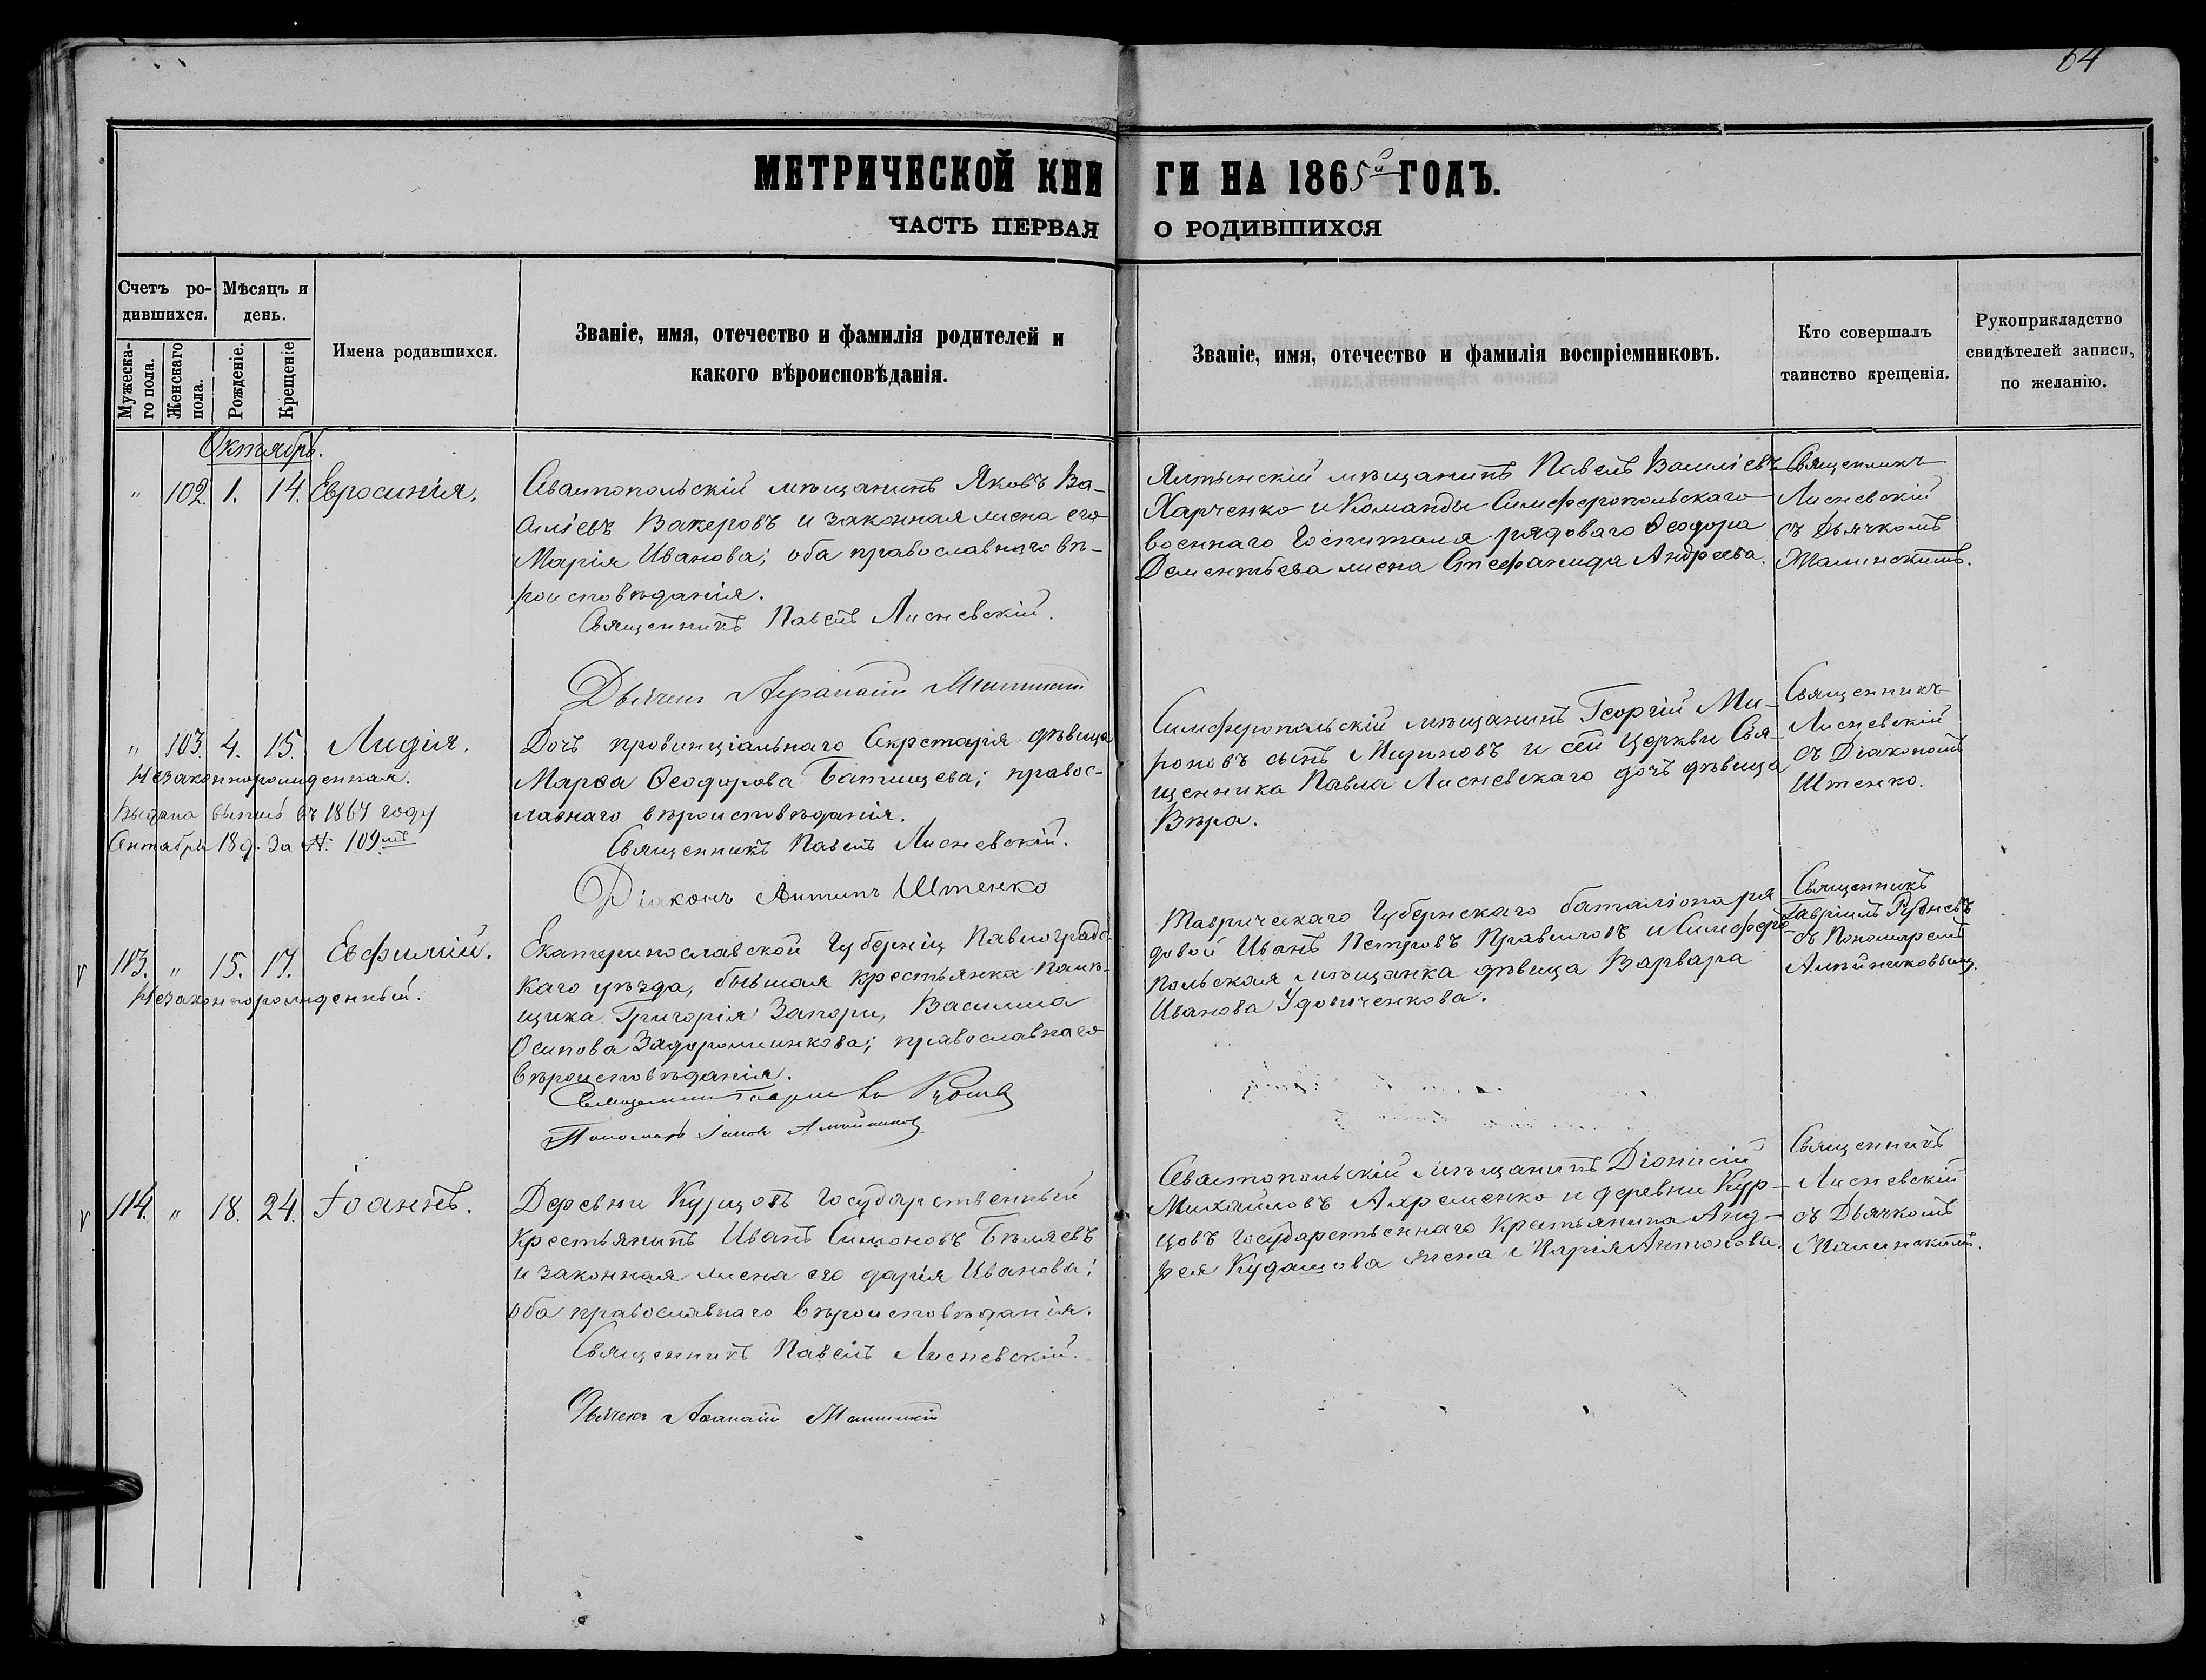 64
МЕТРИЧЕСКОЙ КНИ ГИ НА 1865й ГОДЪ.
ЧАСТЬ ПЕРВАЯ О РОДИВШИХСЯ
Счетъ ро-
дившихся.
Мужеска-
го пола.
Женскаго
пола.
Мѣсяцъ и
день.
Рожденіе.
Крещеніе
Имена родившихся.
Званіе, имя, отечество и фамилія родителей и
какого вѣроисповѣданія.
Званіе, имя, отечество и фамилія воспріемниковъ.
Кто совершалъ
таинство крещенія.
Рукоприкладство
свидѣтелей записи,
по желанію.
Октябрь.
" 102. 1. 14. Евросинія.
Севастопольскій мѣщанинъ Яковъ Ва-
силіевъ Вакеровъ и законная жена его
Марія Иванова; оба православнаго вѣ-
роисповѣданія.
Священникъ Павелъ Лисневскій.
Дьячекъ
Ялтынскій мѣщанинъ Павелъ Василіевъ
Харченко и Команды Симферопольскаго
военнаго Госпиталя рядоваго Ѳеодора
Дементьева жена Стефанида Андреева.
Священникъ
Лисневскій
съ Дьячкомъ
Малинскимъ.
" 103. 4. 15. Лидія.
Незаконнорожденная.
Выдана выпись въ 1867 году
Сентября 18 д. за №: 109мъ
Дочь провинціальнаго Секретаря дѣвица
Марѳа Ѳеодорова Батищева; правос-
лавнаго вѣроисповѣданія.
Священникъ Павелъ Лисневскій.
Діаконъ Антипъ Штенко
Симферопольскій мѣщанинъ Георгій Ми-
роновъ сынъ Мироновъ и сей Церкви Свя-
щенника Павла Лисневскаго дочь дѣвица
Вѣра.
Священникъ
Лисневскій
съ Діакономъ
Штенко.
113. " 15. 17. Евфимій.
Незаконнорожденный.
Екатеринославской Губерніи Павлоградс-
каго уѣзда, бывшая крестьянка помѣ-
щика Григорія Запори, Василиса
Осипова Задорожникова; православнаго
вѣроисповѣданія.
Священникъ
Пономарь
Таврическаго Губернскаго баталіона ря
довой Иванъ Петровъ Правиловъ и Симферо-
польская мѣщанка дѣвица Варвара
Иванова Удовиченкова.
Священникъ
Гавріилъ
съ Пономаремъ
V 114. " 18. 24. Іоаннъ.
Деревни Курцовъ Государственный
Крестьянинъ Иванъ Симоновъ Бѣляевъ
и законная жена его Дарія Иванова;
оба православнаго вѣроисповѣданія.
Священникъ Павелъ Лисневскій.
Дьячекъ Аѳанасій Малинскій
Севастопольскій мѣщанинъ Діонисій
Михайловъ Ахременко и деревни Кур-
цовъ Государственнаго Крестьянина Анд-
рея Кудашова жена Марія Антонова.
Священникъ
Лисневскій
съ Дьячкомъ
Малинскимъ.